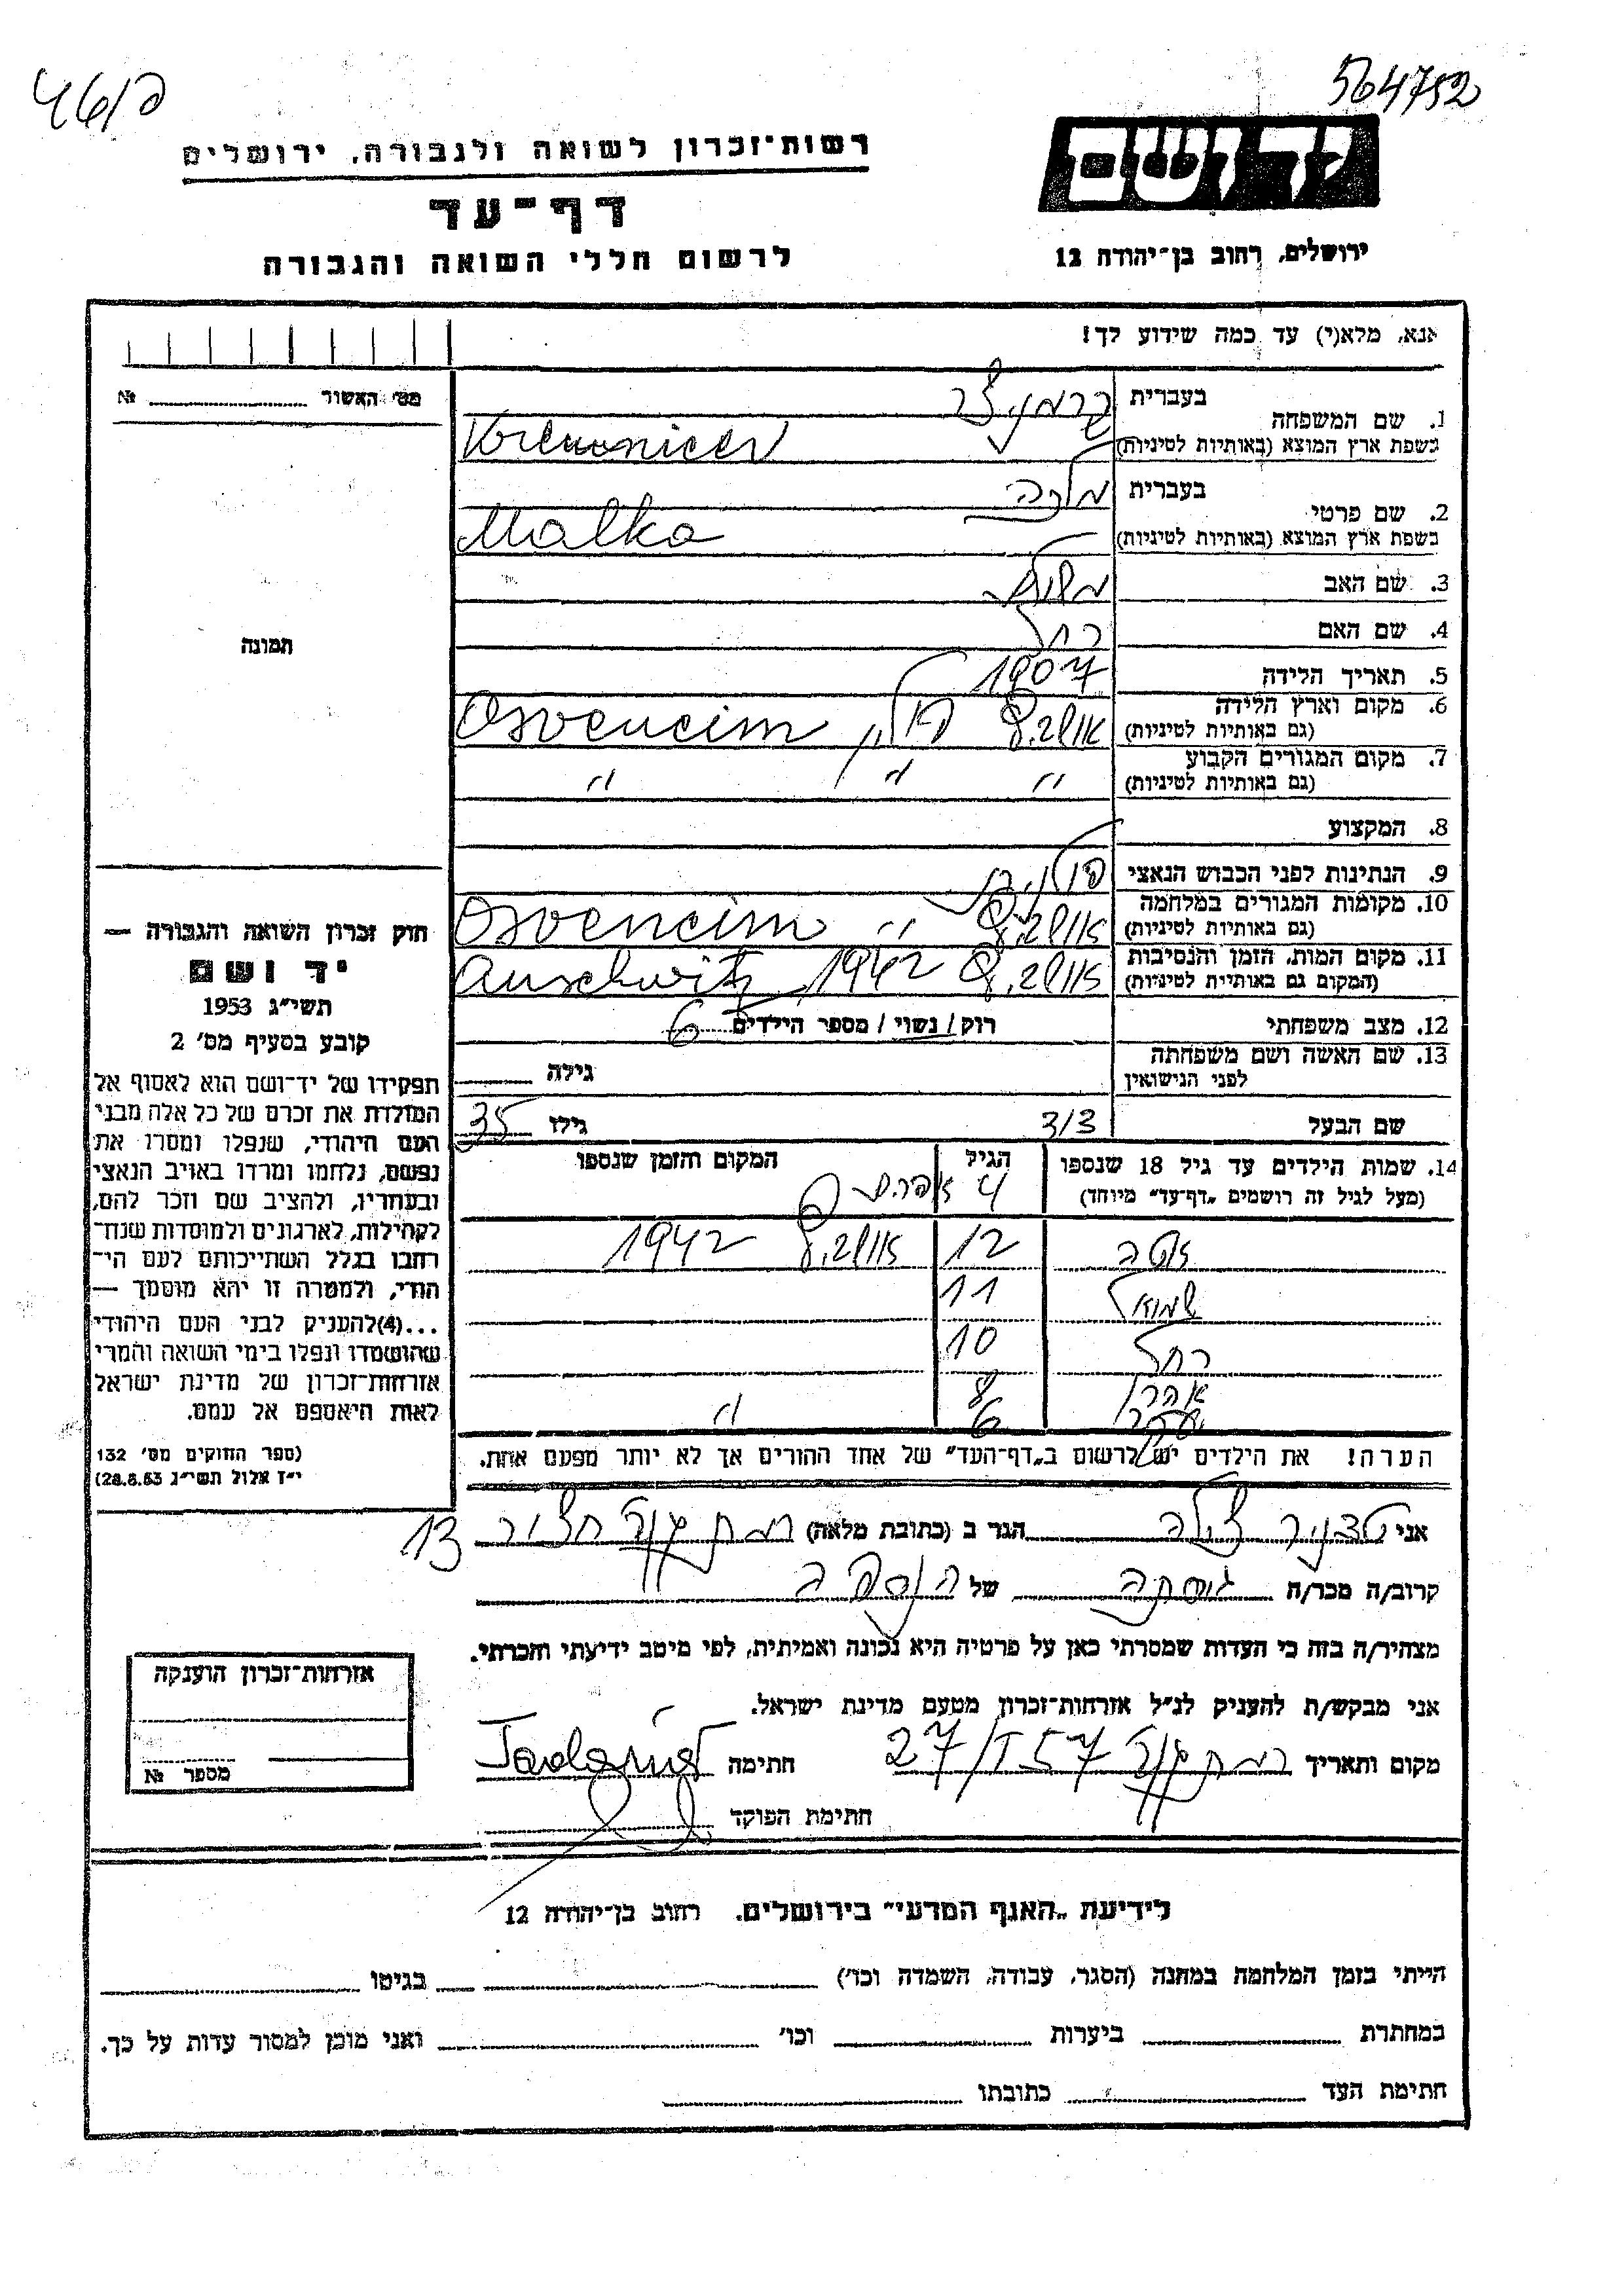 564752
רשות־זכרון לשואה ולגבורה, ירושלים
יד ושם
דף־עד
לרשום חללי השואה והגבורה
ירושלים, רחוב בן־יהודה 12
אנא, מלא(י) עד כמה שידוע לך!
מס׳ האשור № 
1. שם המשפחה בעברית
בשפת ארץ המוצא (באותיות לטיניות)
2. שם פרטי בעברית מלכה
בשפת ארץ המוצא (באותיות לטיניות) Malka
3. שם האב
4. שם האם רחל
תמונה
5. תאריך הלידה 1907
6. מקום וארץ הלידה
(גם באותיות לטיניות) Osvencim
7. מקום המגורים הקבוע
(גם באותיות לטיניות) " " "
8. המקצוע
9. הנתינות לפני הכבוש הנאצי
10. מקומות המגורים במלחמה
(גם באותיות לטיניות) Osvencim
11. מקום המות, הזמן והנסיבות
(המקום גם באותיות לטיניות) 1942 Auschwitz
12. מצב משפחתי רוק / נשוי / מספר הילדים 6
13. שם האשה ושם משפחתה גילה
לפני הנישואין
שם הבעל גילו 35
14. שמות הילדים עד גיל 18 שנספו הגיל המקום והזמן שנספו
(מעל לגיל זה רושמים „דף־עד” מיוחד) 4 אפרים
12 1942
שמואל 11
רחל 10
אהרן 8
6 "
הערה! את הילדים יש לרשום ב„דף־העד” של אחד ההורים אך לא יותר מפעם אחת.
חוק זכרון השואה והגבורה —
יד ושם
תשי״ג 1953
קובע בסעיף מס׳ 2
תפקידו של יד־ושם הוא לאסוף אל
המולדת את זכרם של כל אלה מבני
העם היהודי, שנפלו ומסרו את
נפשם, נלחמו ומרדו באויב הנאצי
ובעוזריו, ולהציב שם וזכר להם,
לקהילות, לארגונים ולמוסדות שנח־
רחבו בגלל השתייכותם לעם הי־
הודי, ולמטרה זו יהא מוסמך —
...(4) להעניק לבני העם היהודי
שהושמדו ונפלו בימי השואה והמרי
אזרחות־זכרון של מדינת ישראל
לאות היאספם אל עמם.
(ספר החוקים מס׳ 132
י״ז אלול תשי״ג 28.8.53)
אני צילה הגר ב (כתובת מלאה) רמת 13
קרוב/ה מכר/ה של
מצהיר/ה בזה כי העדות שמסרתי כאן על פרטיה היא נכונה ואמיתית, לפי מיטב ידיעתי והכרתי.
אני מבקש/ת להעניק לנ״ל אזרחות־זכרון מטעם מדינת ישראל.
מקום ותאריך רמת 27/I 57 חתימה
חתימת הפוקד
אזרחות־זכרון הוענקה
מספר №
לידיעת „האגף המדעי” בירושלים. רחוב בן־יהודה 12
הייתי בזמן המלחמה במחנה (הסגר, עבודה, השמדה וכו׳) בגיטו
במחתרת ביערות וכו׳ ואני מוכן למסור עדות על כך.
חתימת העד כתובתו